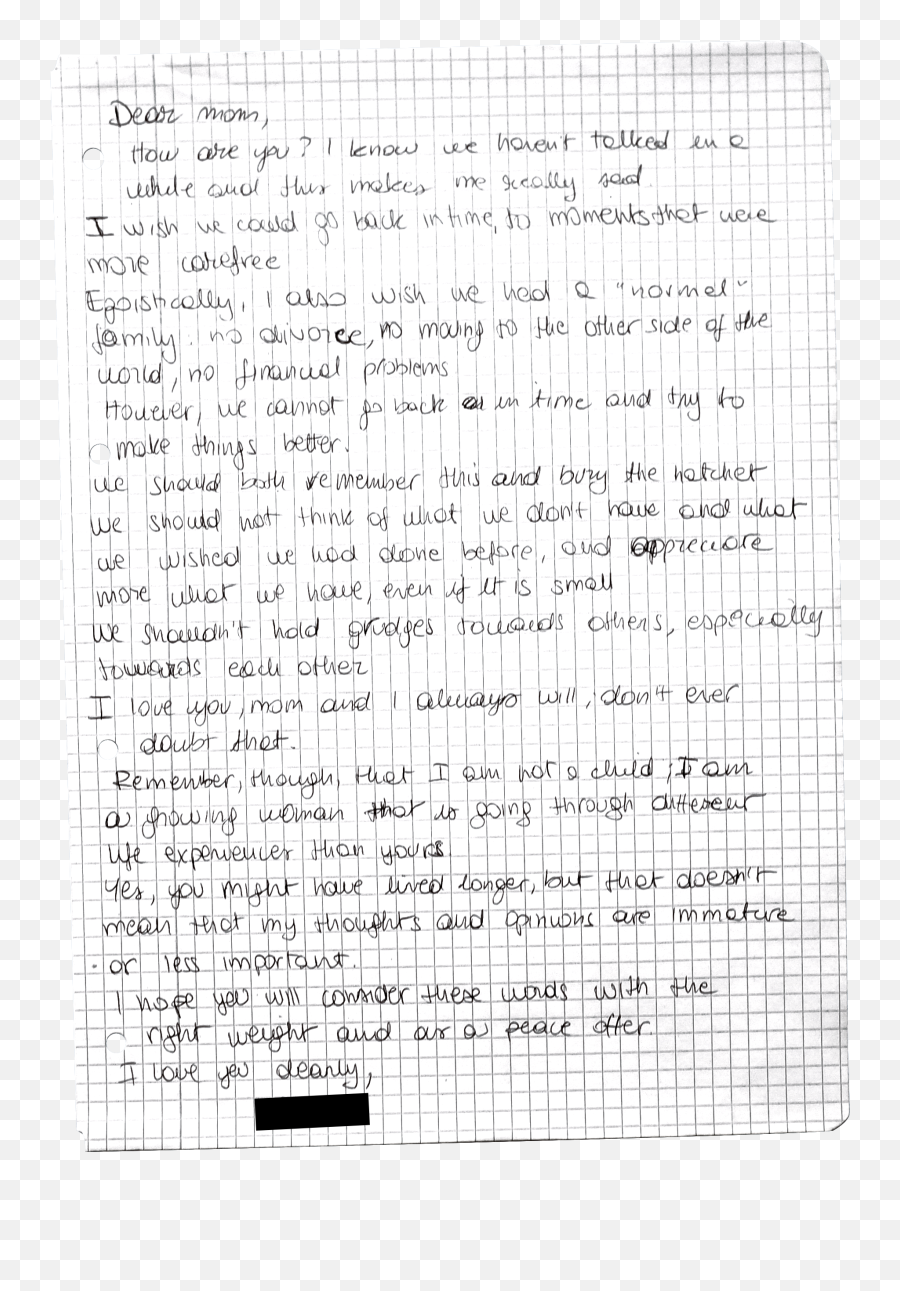 Dear mom,
How are you? I know we haven't talked in a
while and this makes me really sad.
I wish we could go back in time, to moments that were
more carefree
Egoistically, I also wish we had a "normal"
family: no divorce, no moving to the other side of the
world, no financial problems
However, we cannot go back in time and try to
make things better.
We should both remember this and bury the hatchet
We should not think of what we don't have and what
we wished we had done before, and appreciate
more what we have, even if it is small
We shouldn't hold grudges towards others, especially
towards each other
I love you, mom and I always will, don't ever
doubt that.
Remember, though, that I am not a child; I am
a growing woman that is going through different
life experiences than yours.
Yes, you might have lived longer, but that doesn't
mean that my thoughts and opinions are immature
or less important.
I hope you will consider these words with the
right weight and as a peace offer.
I love you dearly,